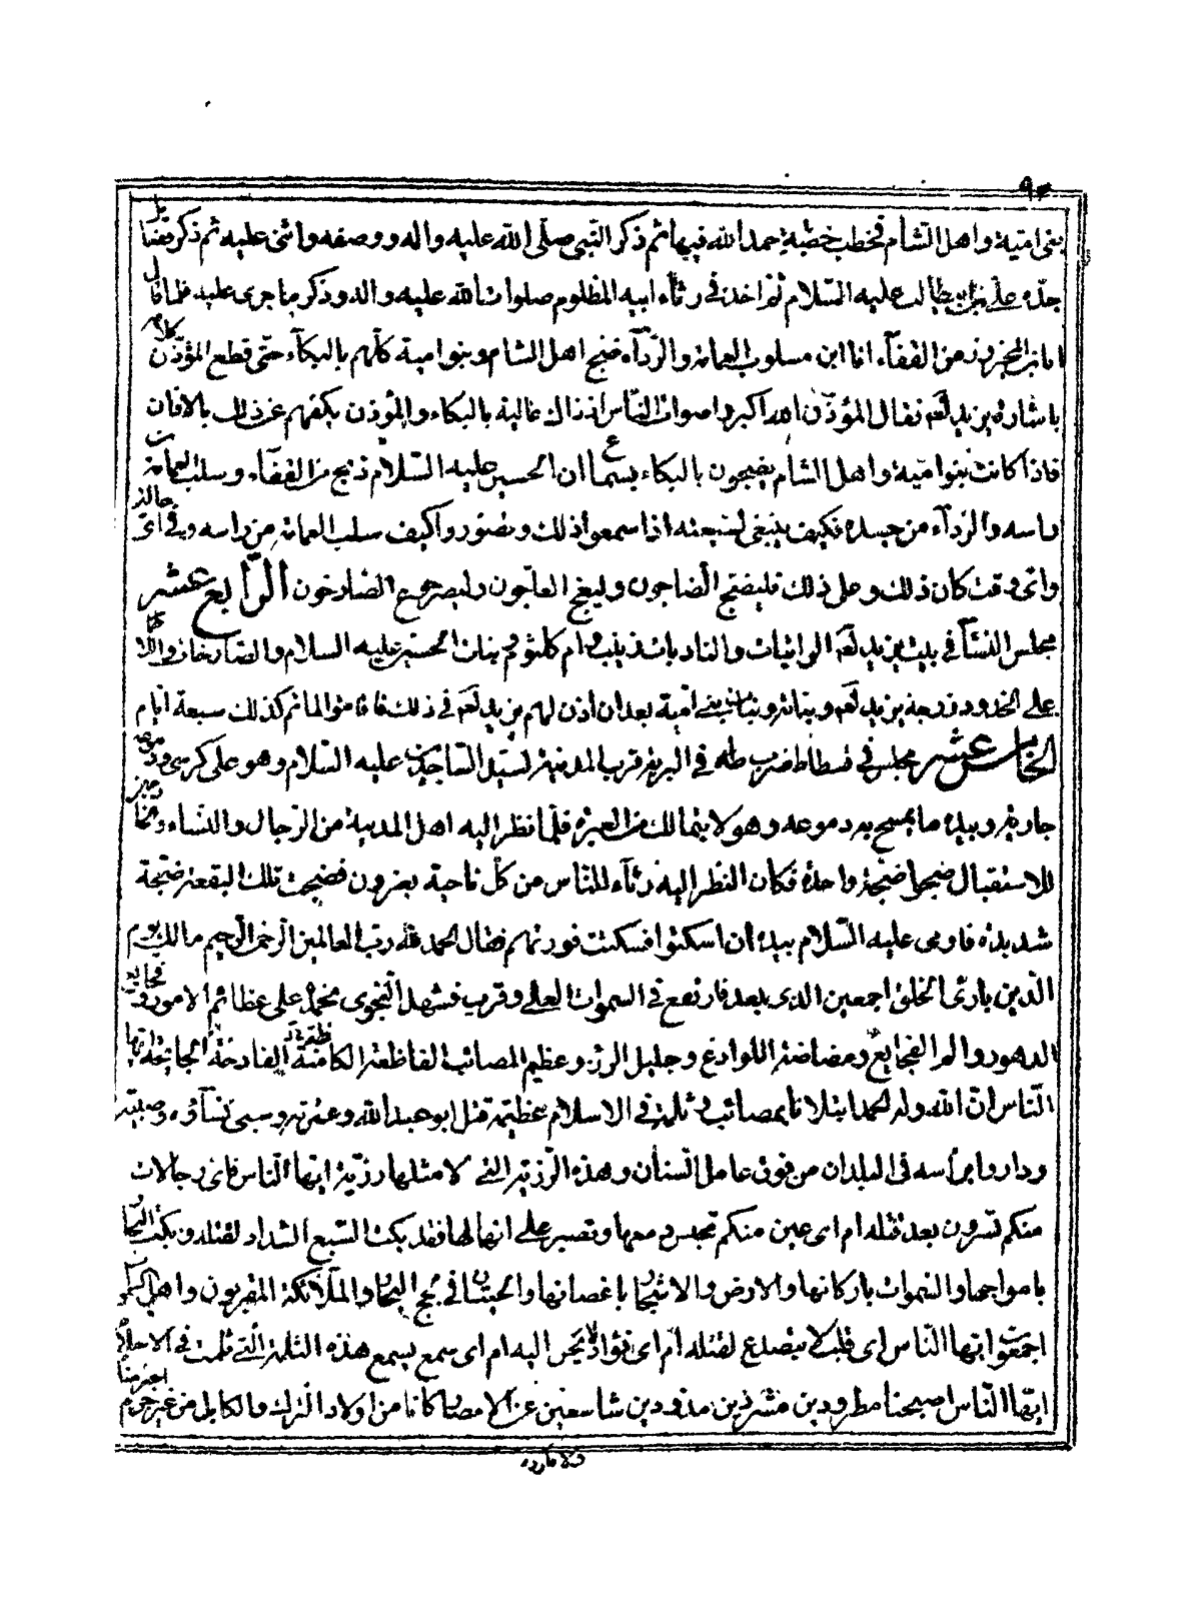 ٩٣
بنى امية واهل الشام فخطب خطبة حمد الله فيها ثم ذكر النبى صلى الله عليه واله ووصفه واثنى عليه ثم ذكر فضايل
جده على بن ابيطالب عليه السلام ثم اخذ فى رثاء ابيه المظلوم صلوات الله عليه واله وذكر ما جرى عليه فلما قال
انا بن المجزوز من القفاء انا ابن مسلوب العمامة والردآء ضج اهل الشام وبنو امية كلهم بالبكآء حتى قطع المؤذن كلامه
باشارة يزيد لعه فقال المؤذن الله اكبر واصوات الناس اذ ذاك عالية بالبكاء والمؤذن يكفهم عن ذلك بالاذان
فاذا كانت بنو امية واهل الشام يضجون بالبكاء بسماع ان الحسين عليه السلام ذبح من القفآء وسلبت العمامة
راسه والردآء من جسده فكيف ينبغى لشيعته اذا سمعوا ذلك وتصوروا كيف سلب العمامة من راسه وفى اى حالة
واى وقت كان ذلك وعلى ذلك فليضج الضاجون وليعج العاجون وليصرخ الصارخون الرابع عشر
مجلس النسآء فى بيت يزيد لعه الراثيات والنادبات زينب وام كلثوم وبنات الحسين عليه السلام والصارخات واللاطمات
على الخدود زوجة يزيد لعه وبناته وبنات بنى امية بعد ان اذن لهم يزيد لعه فى ذلك فاقاموا الماتم كذلك سبعة ايام
الخامس عشر مجلس فى فسطاط ضرب له فى البرية قرب المدينة لسيد الساجدين عليه السلام وهو على كرسى ودموعه
جارية وبيده ما يمسح به دموعه وهو لا يتمالك من العبرة فلما نظر اليه اهل المدينة من الرجال والنساء وقد خرجوا
للاستقبال ضجوا ضجة واحدة فكان النظر اليه رثآء للناس من كل ناحية يعزون فضجت تلك البقعة ضجة
شديدة فاومى عليه السلام بيده ان اسكتوا فسكنت فورتهم فقال الحمد لله رب العالمين الرحمن الرحيم مالك يوم
الدين بارئ الخلق اجمعين الذى بعد فارتفع فى السموات العلى وقرب فشهد النجوى نحمده على عظائم الامور وفجايع
الدهور والم الفجايع ومضاضة اللواذع وجليل الرزء وعظيم المصائب الفاظعة الكاظة الفادحة الجايحة ايها
الناس ان الله وله الحمد ابتلانا بمصائب وثلمة فى الاسلام عظيمة قتل ابو عبد الله وعترته وسبى نسآؤه وصبيته
وداروا براسه فى البلدان من فوق عامل السنان وهذه الرزية التى لا مثلها رزية ايها الناس فاى رجالات
منكم تسرون بعد قتله ام اى عين منكم تحبس دمعها وتضن عن انهمالها فقد بكت السبع الشداد لقتله وبكت البحار
بامواجها والسموات باركانها والارض والاشجار باغصانها والحيتان فى لجج البحار والملآئكة المقربون واهل السموات
اجمعون ايها الناس اى قلب لا ينصدع لقتله ام اى فؤاد لا يحن اليه ام اى سمع يسمع هذه الثلمة التى ثلمت فى الاسلام
ايها الناس اصبحنا مطرودين مشردين مذودين شاسعين عن الامصار كانا من اولاد الترك والكابل من غير جرم اجترمناه
ولا مكروه